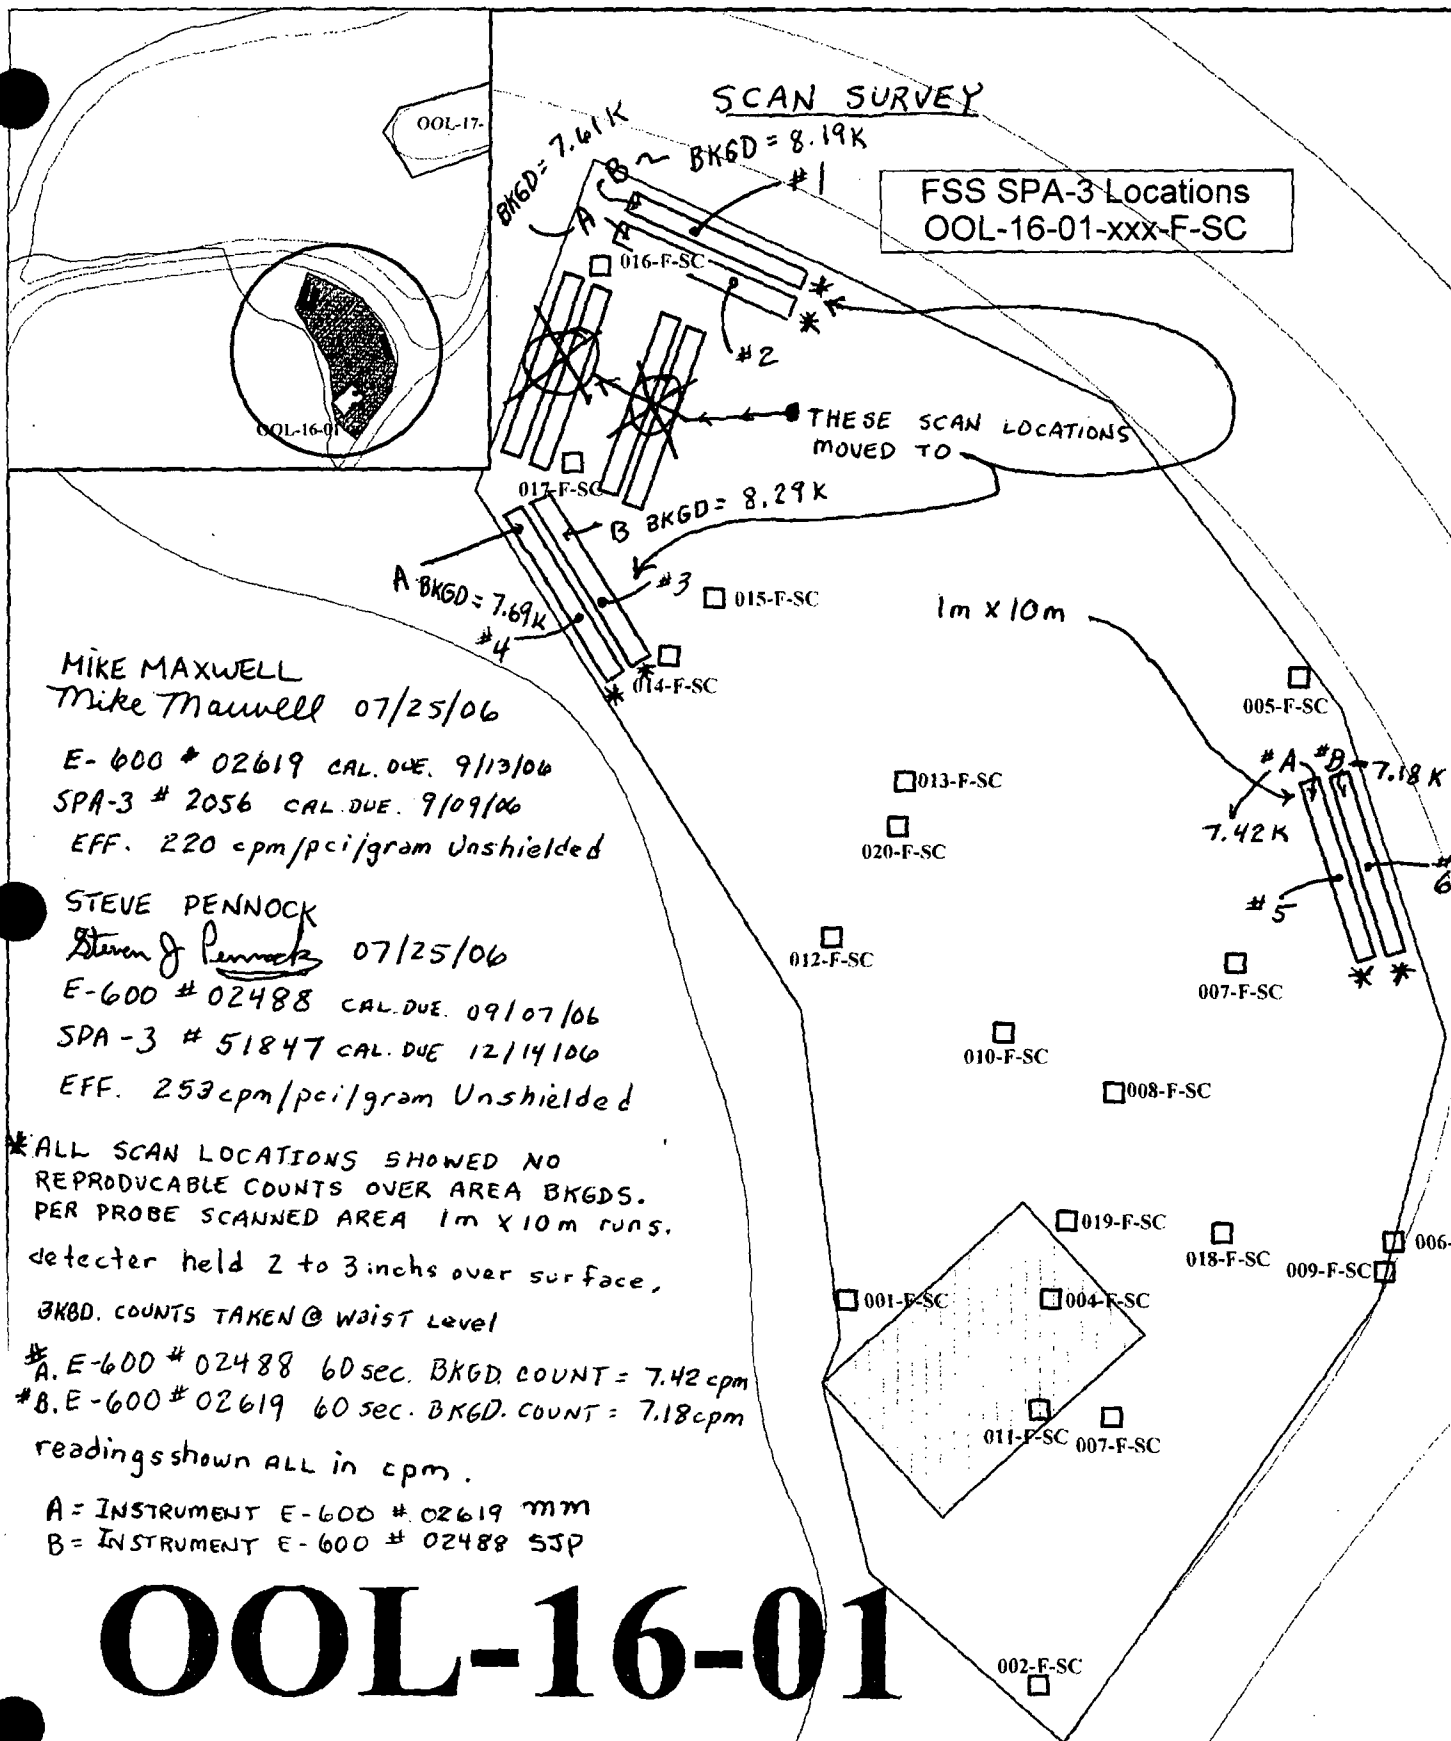 OOL-17-
OOL-16-01
SCAN SURVEY
BKGD = 7.61K
B ~ BKGD = 8.19K
#1
A
FSS SPA-3 Locations
OOL-16-01-xxx-F-SC
016-F-SC
#2
THESE SCAN LOCATIONS
MOVED TO
017-F-SC
B BKGD = 8.29K
A BKGD = 7.69K
#3
#4
015-F-SC
014-F-SC
1m X 10m
005-F-SC
#A
#B
7.18K
7.42K
#5
#6
013-F-SC
020-F-SC
012-F-SC
007-F-SC
010-F-SC
008-F-SC
019-F-SC
018-F-SC
006-
009-F-SC
001-F-SC
004-F-SC
011-F-SC
007-F-SC
002-F-SC
MIKE MAXWELL
Mike Maxwell 07/25/06
E-600 # 02619 CAL. DUE. 9/13/06
SPA-3 # 2056 CAL. DUE. 9/09/06
EFF. 220 cpm/pci/gram Unshielded
STEVE PENNOCK
Steven J Pennock 07/25/06
E-600 # 02488 CAL. DUE. 09/07/06
SPA-3 # 51847 CAL. DUE 12/14/06
EFF. 253 cpm/pci/gram Unshielded
* ALL SCAN LOCATIONS SHOWED NO
REPRODUCABLE COUNTS OVER AREA BKGDS.
PER PROBE SCANNED AREA 1m X 10m runs.
detecter held 2 to 3 inchs over surface.
BKBD. COUNTS TAKEN @ WAIST Level
#A. E-600 # 02488 60 sec. BKGD. COUNT = 7.42 cpm
#B. E-600 # 02619 60 sec. BKGD. COUNT = 7.18 cpm
readings shown ALL in cpm.
A = INSTRUMENT E-600 # 02619 mm
B = INSTRUMENT E-600 # 02488 SJP
OOL-16-01